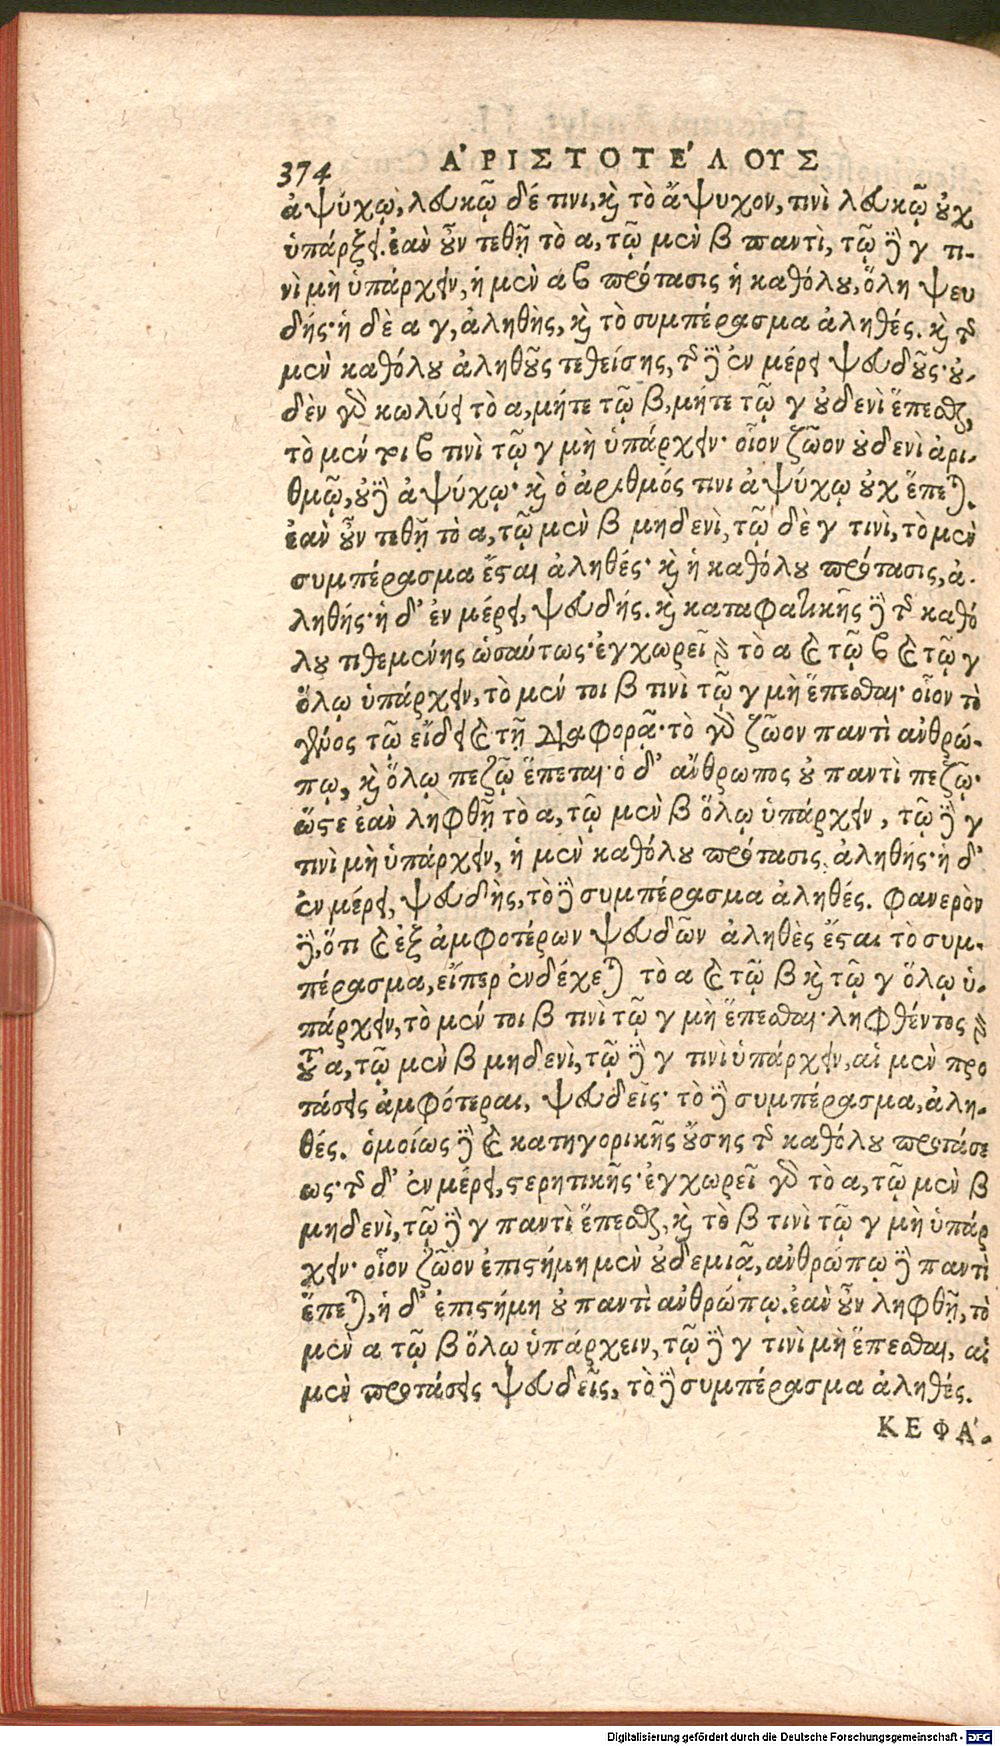 374
ἈΡΙΣΤΟΤΕΛΟΥΣ
ἀψύχῳ, λευκῷ δέ τινι, καὶ τὸ ἄψυχον, τινὶ λευκῷ οὐχ
ὑπάρξει. ἐὰν οὖν τεθῇ τὸ α, τῷ μὲν β παντὶ, τῷ δὲ γ τι-
νὶ μὴ ὑπάρχειν, ἡ μὲν α β πρότασις ἡ καθόλου, ὅλη ψευ
δής· ἡ δὲ α γ, ἀληθὴς, καὶ τὸ συμπέρασμα ἀληθές. καὶ τῆς
μὲν καθόλου ἀληθοῦς τεθείσης, τῆς δὲ ἐν μέρει ψευδοῦς· οὐ-
δὲν γὰρ κωλύει τὸ α, μήτε τῷ β, μήτε τῷ γ οὐδενὶ ἕπεσθαι,
τὸ μέν τοι β τινὶ τῷ γ μὴ ὑπάρχειν· οἷον ζῷον οὐδενὶ ἀρι-
θμῷ, οὐδὲ ἀψύχῳ· καὶ ὁ ἀριθμός τινι ἀψύχῳ οὐχ ἕπεται.
ἐὰν οὖν τεθῇ τὸ α, τῷ μὲν β μηδενὶ, τῷ δὲ γ τινὶ, τὸ μὲν
συμπέρασμα ἔσται ἀληθές· καὶ ἡ καθόλου πρότασις, ἀ-
ληθής· ἡ δ' ἐν μέρει, ψευδής. καὶ καταφατικῆς δὲ τῆς καθό
λου τιθεμένης ὡσαύτως· ἐγχωρεῖ γὰρ τὸ α καὶ τῷ β καὶ τῷ γ
ὅλῳ ὑπάρχειν, τὸ μέν τοι β τινὶ τῷ γ μὴ ἕπεσθαι· οἷον τὸ
γένος τῷ εἴδει καὶ τῇ διαφορᾷ· τὸ γὰρ ζῷον παντὶ ἀνθρώ-
πῳ, καὶ ὅλῳ πεζῷ ἕπεται· ὁ δ' ἄνθρωπος οὐ παντὶ πεζῷ·
ὥστε ἐὰν ληφθῇ τὸ α, τῷ μὲν β ὅλῳ ὑπάρχειν, τῷ δὲ γ
τινὶ μὴ ὑπάρχειν, ἡ μὲν καθόλου πρότασις ἀληθής· ἡ δ'
ἐν μέρει, ψευδὴς, τὸ δὲ συμπέρασμα ἀληθές. Φανερὸν
δὲ, ὅτι καὶ ἐξ ἀμφοτέρων ψευδῶν ἀληθὲς ἔσται τὸ συμ-
πέρασμα, εἴπερ ἐνδέχεται τὸ α καὶ τῷ β καὶ τῷ γ ὅλῳ ὑ-
πάρχειν, τὸ μέν τοι β τινὶ τῷ γ μὴ ἕπεσθαι· ληφθέντος γὰρ
τοῦ α, τῷ μὲν β μηδενὶ, τῷ δὲ γ τινὶ ὑπάρχειν, αἱ μὲν προ
τάσεις ἀμφότεραι, ψευδεῖς· τὸ δὲ συμπέρασμα, ἀλη-
θές. ὁμοίως δὲ καὶ κατηγορικῆς οὔσης τῆς καθόλου προτάσε
ως· τῆς δ' ἐν μέρει, στερητικῆς· ἐγχωρεῖ γὰρ τὸ α, τῷ μὲν β
μηδενὶ, τῷ δὲ γ παντὶ ἕπεσθαι, καὶ τὸ β τινὶ τῷ γ μὴ ὑπάρ
χειν· οἷον ζῷον ἐπιστήμῃ μὲν οὐδεμιᾷ, ἀνθρώπῳ δὲ παντὶ
ἕπεται, ἡ δ' ἐπιστήμη οὐ παντὶ ἀνθρώπῳ. ἐὰν οὖν ληφθῇ, τὸ
μὲν α τῷ β ὅλῳ ὑπάρχειν, τῷ δὲ γ τινὶ μὴ ἕπεσθαι, αἱ
μὲν προτάσεις ψευδεῖς, τὸ δὲ συμπέρασμα ἀληθές.
ΚΕΦΑ-
Digitalisierung gefördert durch die Deutsche Forschungsgemeinschaft - DFG